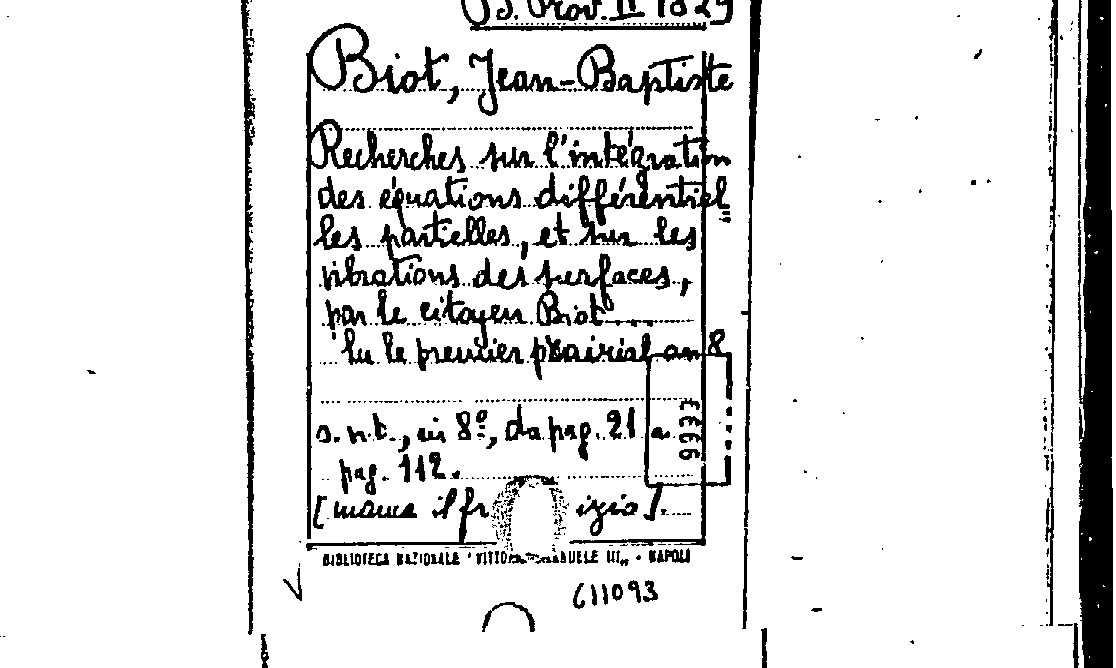 B. Prov. II 1829
Biot, Jean-Baptiste
Recherches sur l'intégration
des équations différentiel"
les partielles, et sur les
vibrations des surfaces,
par le citoyen Biot....
lu le premier prairial an 8
s.n.t., in 8º, da pag. 21 a
pag. 112.
[manca il fr izio].
BIBLIOTECA NAZIONALE "VITTO ANUELE III" - NAPOLI
611093